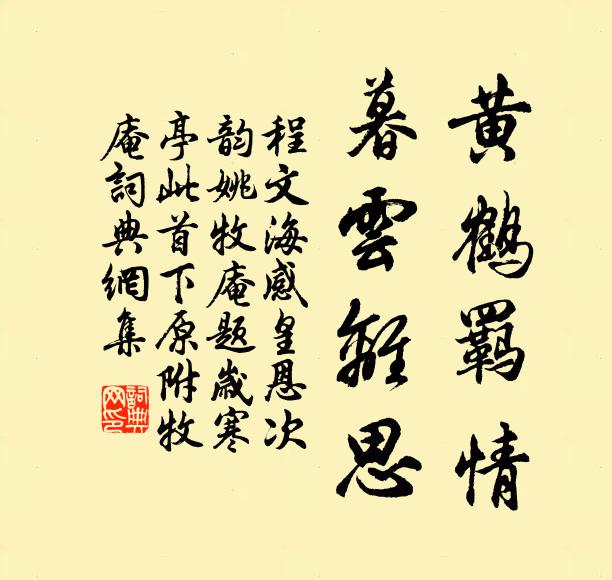 黄鶴羈情
暮雲離思
程文海感皇恩次
韵姚牧庵題歲寒
亭此首下原附牧
庵詞典網集
詞典
网印